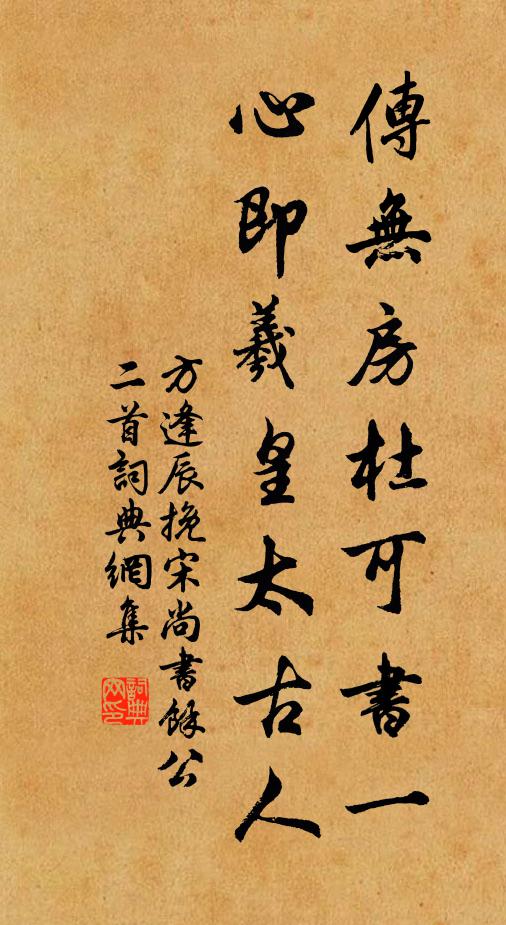 傳無房杜可書一
心即羲皇太古人
方逢辰挽宋尚書餘公
二首詞典網集
詞典
网印